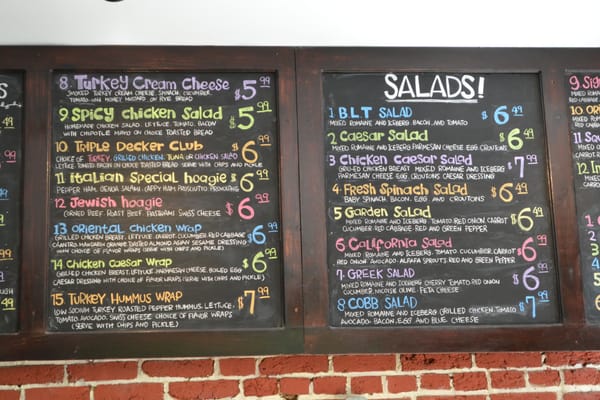 8 Turkey Cream Cheese $5.99
SMOKED TURKEY CREAM CHEESE, SPINACH, CUCUMBER,
TOMATO HONEY MUSTARD ON RYE BREAD
9 Spicy chicken Salad $5.99
HOMEMADE CHICKEN SALAD, LETTUCE, TOMATO, BACON
WITH CHIPOTLE MAYO ON CHOICE TOASTED BREAD
10 Triple Decker Club $6.99
CHOICE OF TURKEY, GRILLED CHICKEN, TUNA OR CHICKEN SALAD
LETTUCE TOMATO BACON ON CHOICE TOASTED BREAD (SERVE WITH CHIPS AND PICKLE)
11 Italian Special hoagie $6.99
PEPPER HAM, GENOA SALAMI, CAPPY HAM, PROSCIUTTO, PROVOLONE
12 Jewish hoagie $6.99
CORNED BEEF, ROAST BEEF, PASTRAMI, SWISS CHEESE
13 Oriental chicken Wrap $6.99
GRILLED CHICKEN BREAST, LETTUCE, CARROT, CUCUMBER, RED CABBAGE
CILANTRO, MANDARIN ORANGE TOASTED ALMOND ASIAN SESAME DRESSING
WITH CHOICE OF FLAVOR WRAPS (SERVE WITH CHIPS AND PICKLE)
14 Chicken Caesar Wrap $6.99
GRILLED CHICKEN BREAST, LETTUCE PARMESAN CHEESE, BOILED EGG
CAESAR DRESSING WITH CHOICE OF FLAVOR WRAPS (SERVE WITH CHIPS AND PICKLE)
15 Turkey Hummus Wrap $7.99
LOW SODIUM TURKEY ROASTED PEPPER HUMMUS, LETTUCE,
TOMATO, AVOCADO, SWISS CHEESE CHOICE OF FLAVOR WRAPS
(SERVE WITH CHIPS AND PICKLE)
SALADS!
1 B.L.T SALAD $6.49
MIXED ROMAINE AND ICEBERG, BACON, AND TOMATO
2 Caesar Salad $6.49
MIXED ROMAINE AND ICEBERG PARMESAN CHEESE EGG CROUTONS
3 Chicken Caesar Salad $7.99
GRILLED CHICKEN BREAST MIXED ROMAINE AND ICEBERG
PARMESAN CHEESE EGG, CROUTONS CAESAR DRESSING
4 Fresh Spinach Salad $6.49
BABY SPINACH, BACON, EGG, AND CROUTONS
5 Garden Salad $6.49
MIXED ROMAINE AND ICEBERG TOMATO RED ONION, CARROT,
CUCUMBER, RED CABBAGE, RED AND GREEN PEPPER
6 California Salad $6.99
MIXED ROMAINE AND ICEBERG, TOMATO, CUCUMBER, CARROT
RED ONION, AVOCADO, ALFALFA SPROUTS, RED AND GREEN PEPPER
7 GREEK SALAD $6.99
MIXED ROMAINE AND ICEBERG CHERRY TOMATO, RED ONION
CUCUMBER, NICOISE OLIVE, FETA CHEESE
8 COBB SALAD $7.99
MIXED ROMAINE AND ICEBERG, GRILLED CHICKEN, TOMATO
AVOCADO, BACON, EGG, AND BLUE CHEESE